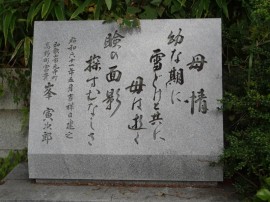 母情
幼な期に
雪どけと共に
母は逝く
瞼の面影
探すむなしさ
昭和六十一年五月吉祥日建之
峯 寅次郎